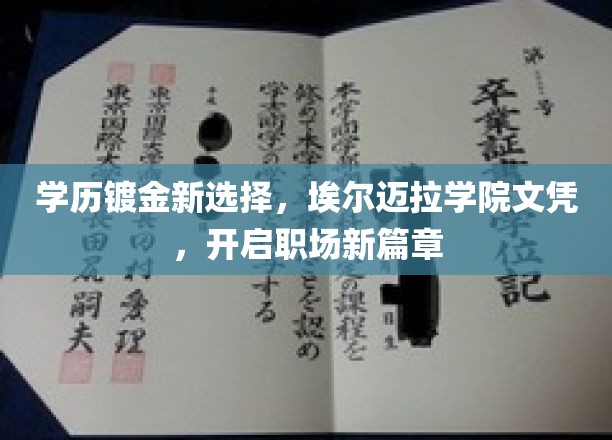 学历镀金新选择，埃尔迈拉学院文凭
，开启职场新篇章
第
号
卒業証
学位記
本学商学部
定の課程を
修めて本学
ことを認め
学士(商学)の
する
東京国際大学
田村愛理
東京国際大
長田尻嗣夫